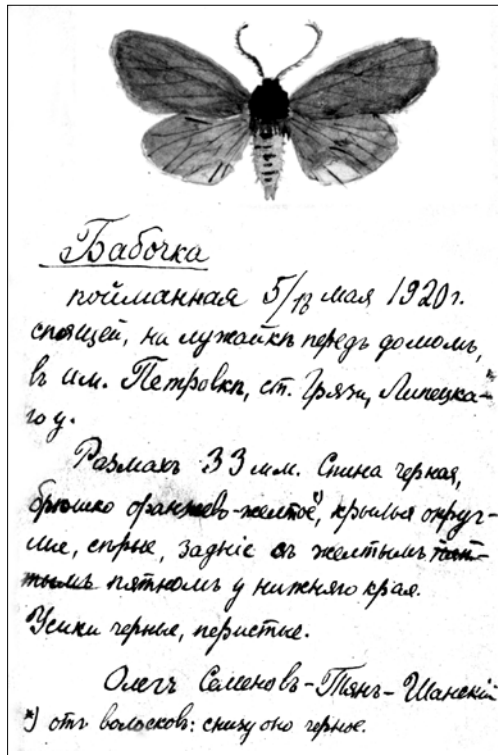 Бабочка
пойманная 5/18 мая 1920 г.
спящей, на лужайкѣ передъ домомъ,
въ им. Петровкѣ, ст. Грязи, Липецка-
го у.
Размахъ 33 мм. Спина черная,
брюшко оранжево-желтое*), крылья округ-
лые, сѣрые, заднiе съ желтымъ
пятномъ у нижняго края.
Усики черные, перистые.
Олегъ Семеновъ-Тянъ-Шанскiй
*) отъ волосковъ: снизу оно черное.